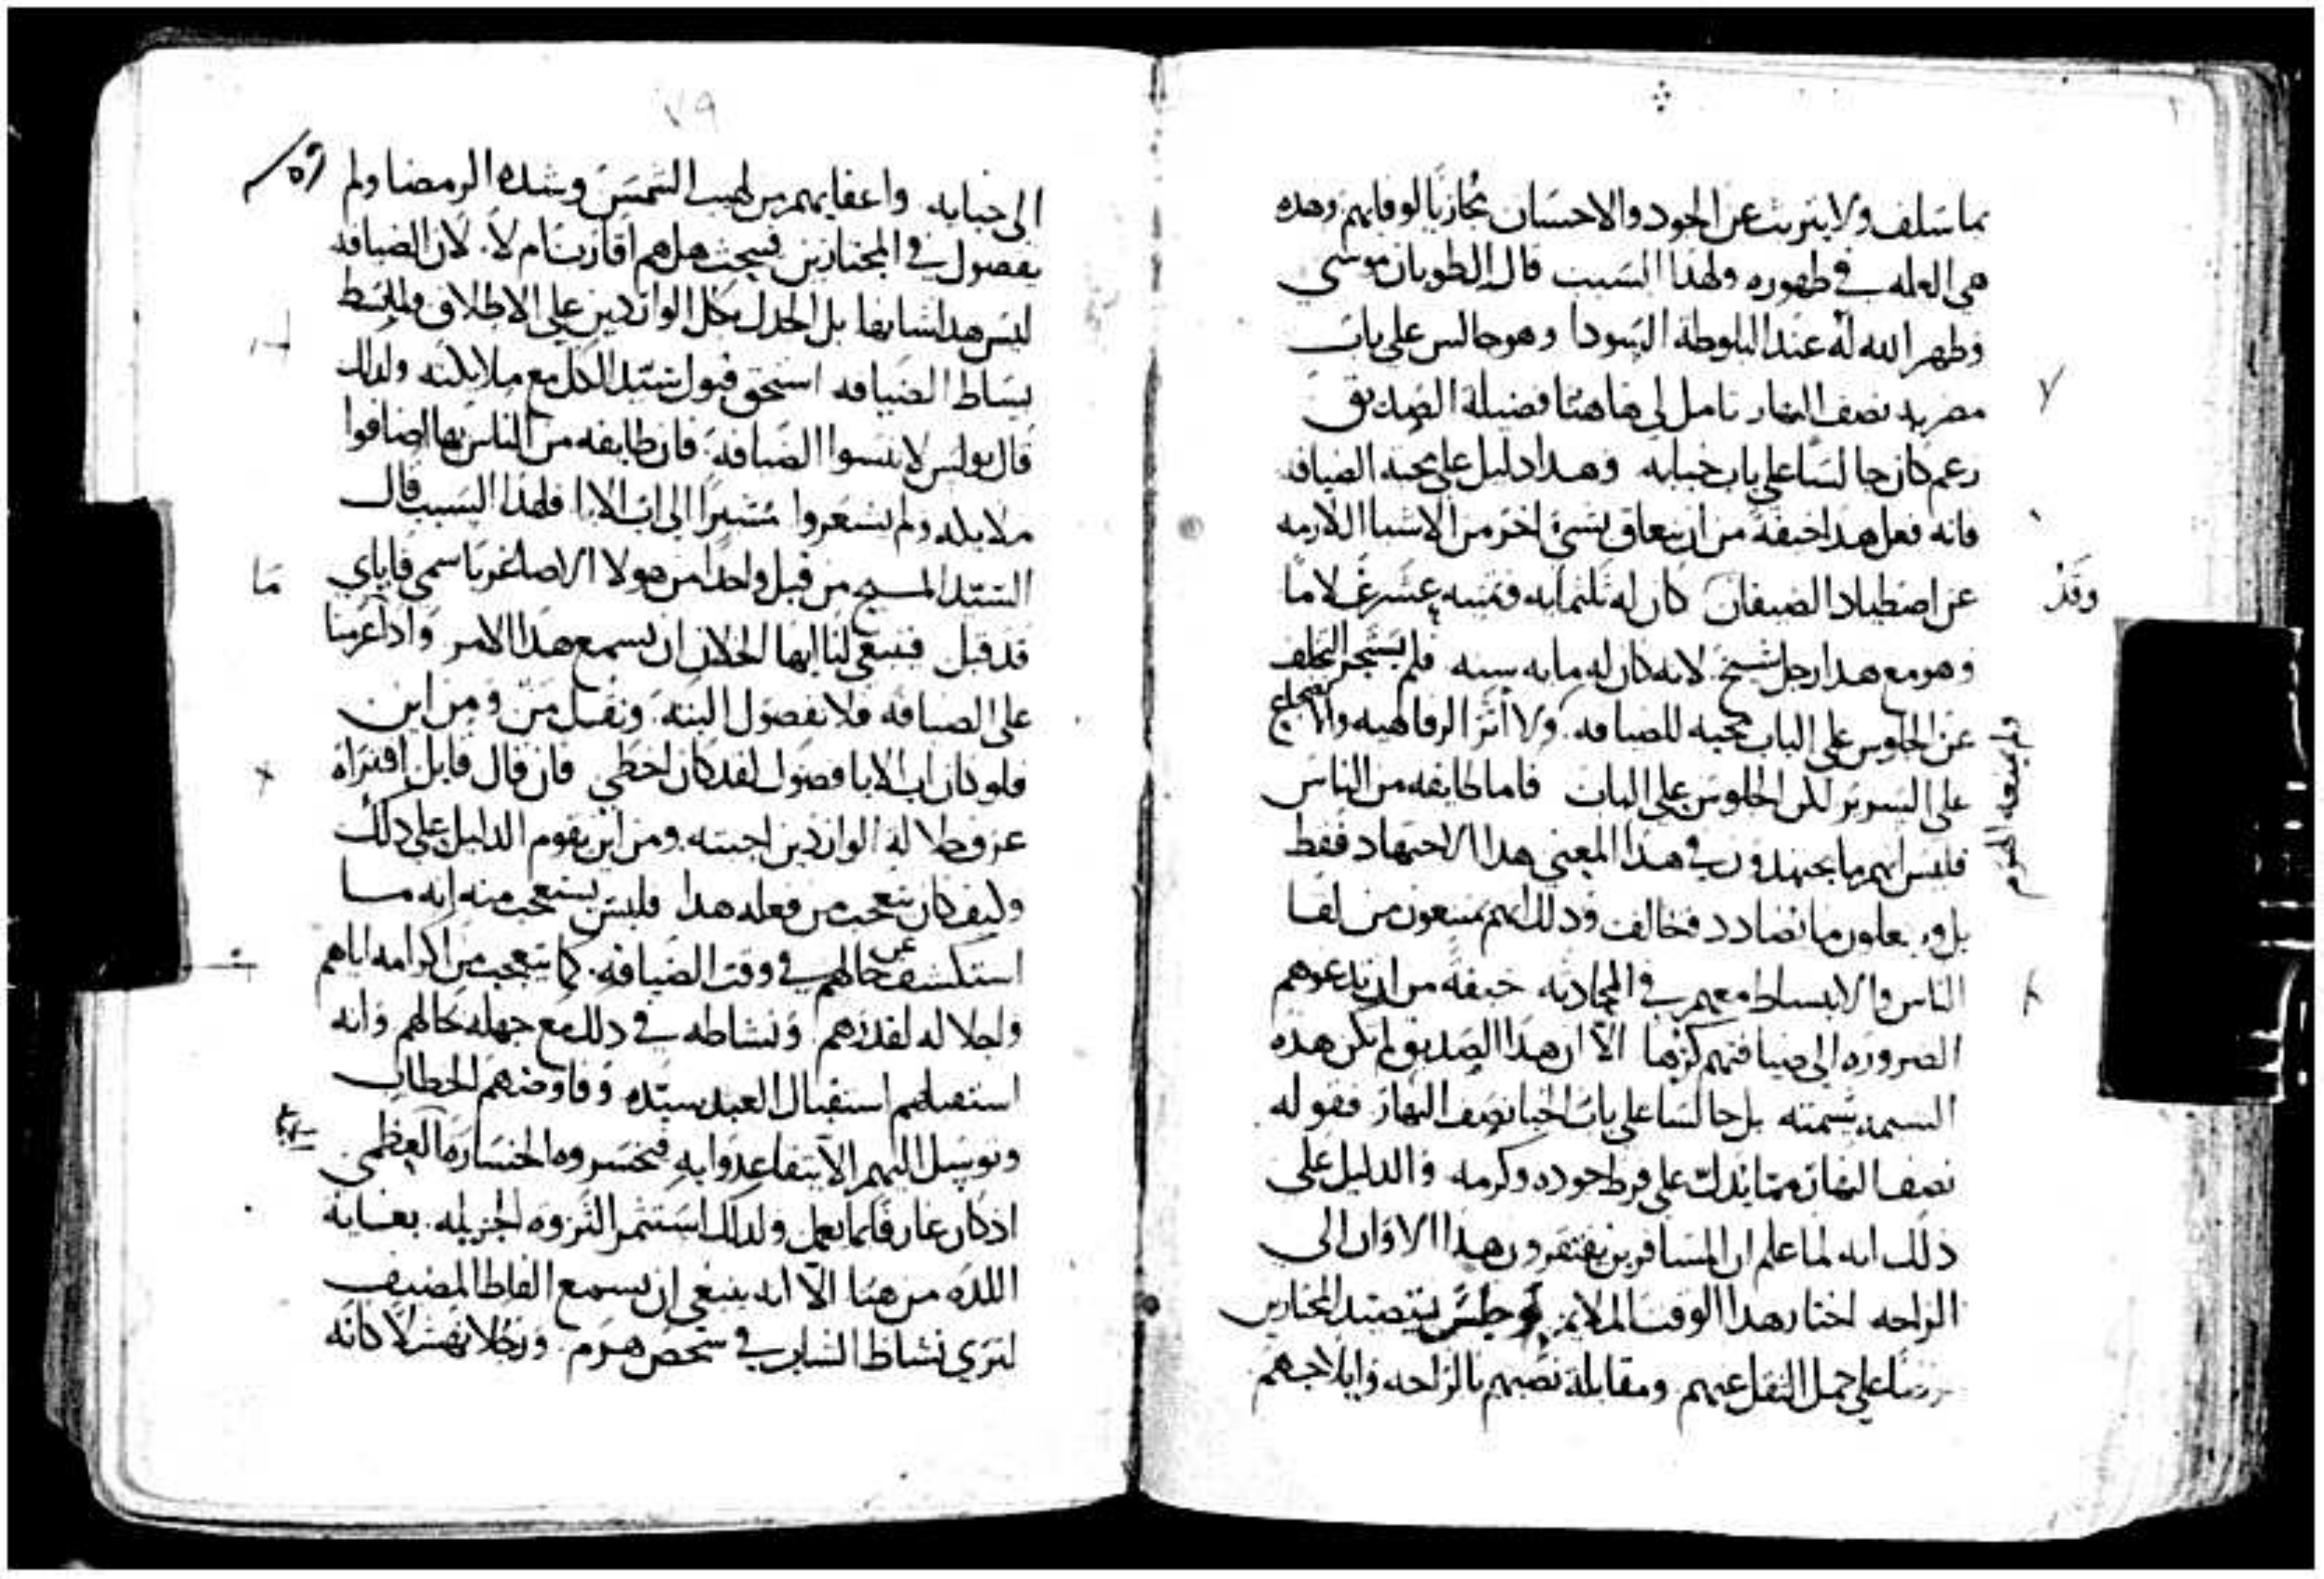 بما سلف ولا يتريث عن الجود والاحسان مجازيا لوفايهم وهده
هي العله في طهوره ولهدا السبب قال الطوبان موسي
وطهر الله له عند البلوطة السودا وهو جالس علي باب
مضربه نصف النهار تامل لي هاهنا فضيلة الصديق
زعم كان جالسا علي باب خبايه وهدا دليل علي محبه الضيافه
فانه فعل هدا خيفة من ان يتعاق بشي اخر من الاشيا اللازمه
عن اصطياد الضيفان كان له ثلثمايه وثمنيه عشر غلاما
وقد
وهو مع هدا رجل شيخ لانه كان له مايه سنه فلم التخلف
عن الجلوس علي الباب محبه للضيافه ولا اثر الرفاهيه والاضجاع
ولم يمنعه الهرم
علي السرير لكن الجلوس علي الباب فاما طايفه من الناس
فليس انهم ما يجتهدون في هدا المعني هدا الاجتهاد فقط
بل ويفعلون ما يضادد فخالف ودلك انهم يمتنعون من لقا
الناس والانبساط معهم في المحادثه خيفة من ان تدعوهم
الضروره الي ضيافتهم كرها الا ان هدا الصديق لم تكن هده
الشيمه شيمته بل جالسا علي باب الخبا نصف النهار فقوله
نصف النهار مما يدلك علي فرط جوده وكرمه والدليل علي
دلك انه لما علم ان المسافرين يفتقرون هدا الاوان الي
الراحه اختار هدا الوقت الملايم وجلس يتصيد المجتازين
علي حمل الثقل عنهم ومقابلة نصبهم بالراحه وايلاجهم
٧٩
الي خبايه واعفايهم من لهيب الشمس وشده الرمضا ولم
يفصول في المجتازين فيبحث هل هم اقارب ام لا لان الضيافه
ليس هدا شانها بل الجدل بكل الواردين علي الاطلاق
بساط الضيافه استحق قبول سيد الكل مع ملايكته ولدلك
قال بولس لا تنسوا الضيافه فان طايفه من الناس بها اضافوا
ملايكه ولم يشعروا مشيرا الي اب الابا فلهدا السبب قال
السيد المسيح من قبل واحدا من هولا الاصاغر باسمي فاياي
ما
قد قبل فينبغي لنا ايها الخلان ان نسمع هدا الامر وادا عزمنا
علي الضيافه فلا نفصول البته ونقل من ومن اين
فلو كان اب الابا فصول لقد كان اخطي فان قال قايل افتراه
عرف جلالة الواردين اجبته ومن اين يقوم الدليل علي دلك
وكيف كان يتعجب من فعله هدا فليس يتعجب منه انه ما
استكشف عن حالهم في وقت الضيافه كما يتعجب من اكرامه اياهم
واجلاله لقدرهم ونشاطه في دلك مع جهله بحالهم وانه
استقبلهم استقبال العبد سيده وفاوضهم الخطاب
وتوسل اليهم الا الخساره العظمي
اد كان عارفا بما يعمل ولدلك استثمر الثروه الجزيله بغاية
اللده من هنا الا انه ينبغي ان نسمع الفاظ المضيف
لنري نشاط الشاب في شخص هرم ورجلا كانه